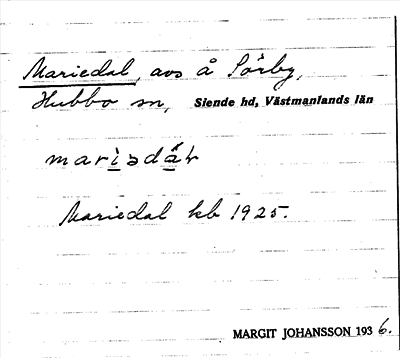 Mariedal, avs å Sörby,
Hubbo sn, Siende hd, Västmanlands län
Mariedal kb 1925.
MARGIT JOHANSSON 1936.